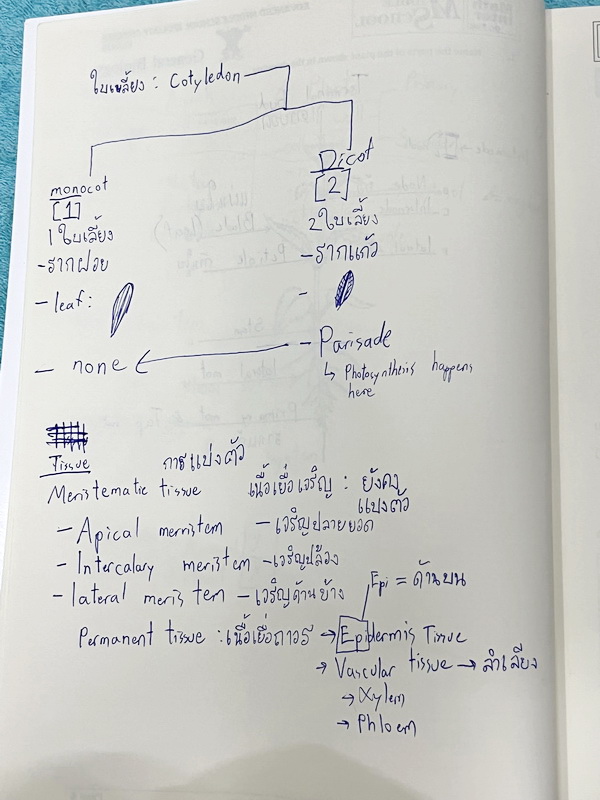 ใบเลี้ยง : Cotyledon
monocot
[1]
1 ใบเลี้ยง
- รากฝอย
- leaf :
- none
Dicot
[2]
2 ใบเลี้ยง
- รากแก้ว
-
- Parisade
↳ Photosynthesis happens
here
Tissue
การแบ่งตัว
Meristematic tissue เนื้อเยื่อเจริญ : ยังคง
แบ่งตัว
- Apical merristem - เจริญปลายยอด
- Intercalary meristem - เจริญปล้อง
- lateral meristem - เจริญด้านข้าง
Epi = ด้านบน
Permanent tissue : เนื้อเยื่อถาวร → Epidermis Tissue
→ Vascular tissue → ลำเลียง
→ Xylem
→ Phloem